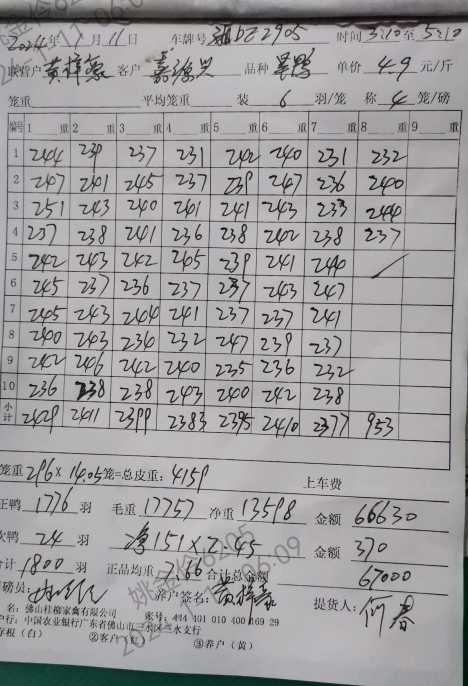 2024年11月11日 车牌号 bZ2905 时间 3:10至5:10
联营户 黄梓豪 客户 嘉源兴 品种 单价 4.9 元/斤
笼重 平均笼重 装 6 羽/笼 称 4 笼/磅
编号 1 重 2 重 3 重 4 重 5 重 6 重 7 重 8 重 9 重
1 244 239 237 231 242 240 231 232
2 247 241 245 237 239 247 236 240
3 251 243 240 241 241 243 233 244
4 237 238 241 236 238 242 238 237
5 242 243 242 245 239 241 244
6 245 237 236 237 237 243 247
7 245 243 244 241 237 237 241
8 240 243 234 232 247 239 237
9 242 246 242 240 235 236 232
10 236 238 238 243 240 242 238
小计 2429 2411 2399 2383 2395 2410 2377 953
笼重 296×14.05 笼=总皮重: 4159 上车费
正鸭 1776 羽 毛重 17757 净重 13598 金额 66630
次鸭 24 羽 净151×2.45 金额 370
合计 1800 羽 正品均重 7.66 合计总金额 67000
司磅员: 养户签名: 黄梓豪 提货人: 何春
名: 佛山桂柳家禽有限公司
户行: 中国农业银行广东省佛山市三水区三水支行 账号:
存根（白） ②客户 ③养户（黄）